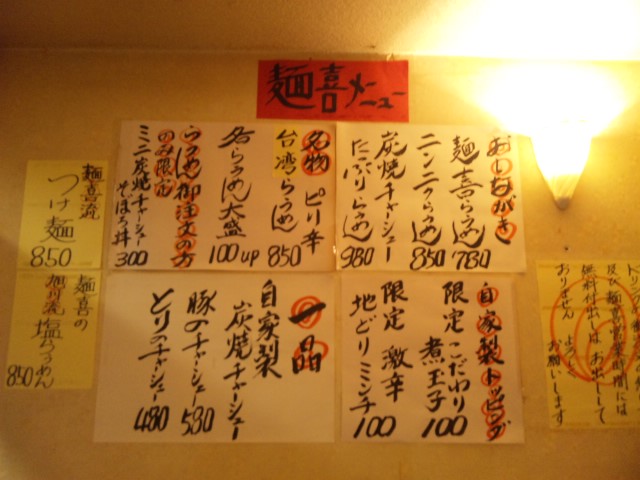 麺喜メニュー
おしながき
麺喜らぅめん
780
ニンニクらぅめん
850
炭焼チャーシュー
たっぷりらぅめん
980
名物 ピリ辛
台湾らぅめん
850
各らぅめん大盛
100up
らぅめん御注文の方
のみ限定
ミニ炭焼チャーシュー
そぼろ丼
300
麺喜流
つけ麺
850
麺喜の
塩らぅめん
850
自家製トッピング
限定こだわり
煮玉子
100
限定 激辛
地どりミンチ
100
一品
自家製
炭焼チャーシュー
豚のチャーシュー
580
とりのチャーシュー
480
及び麺喜営業時間には
無料付出しは お出しして
おりません よろしく
お願いします